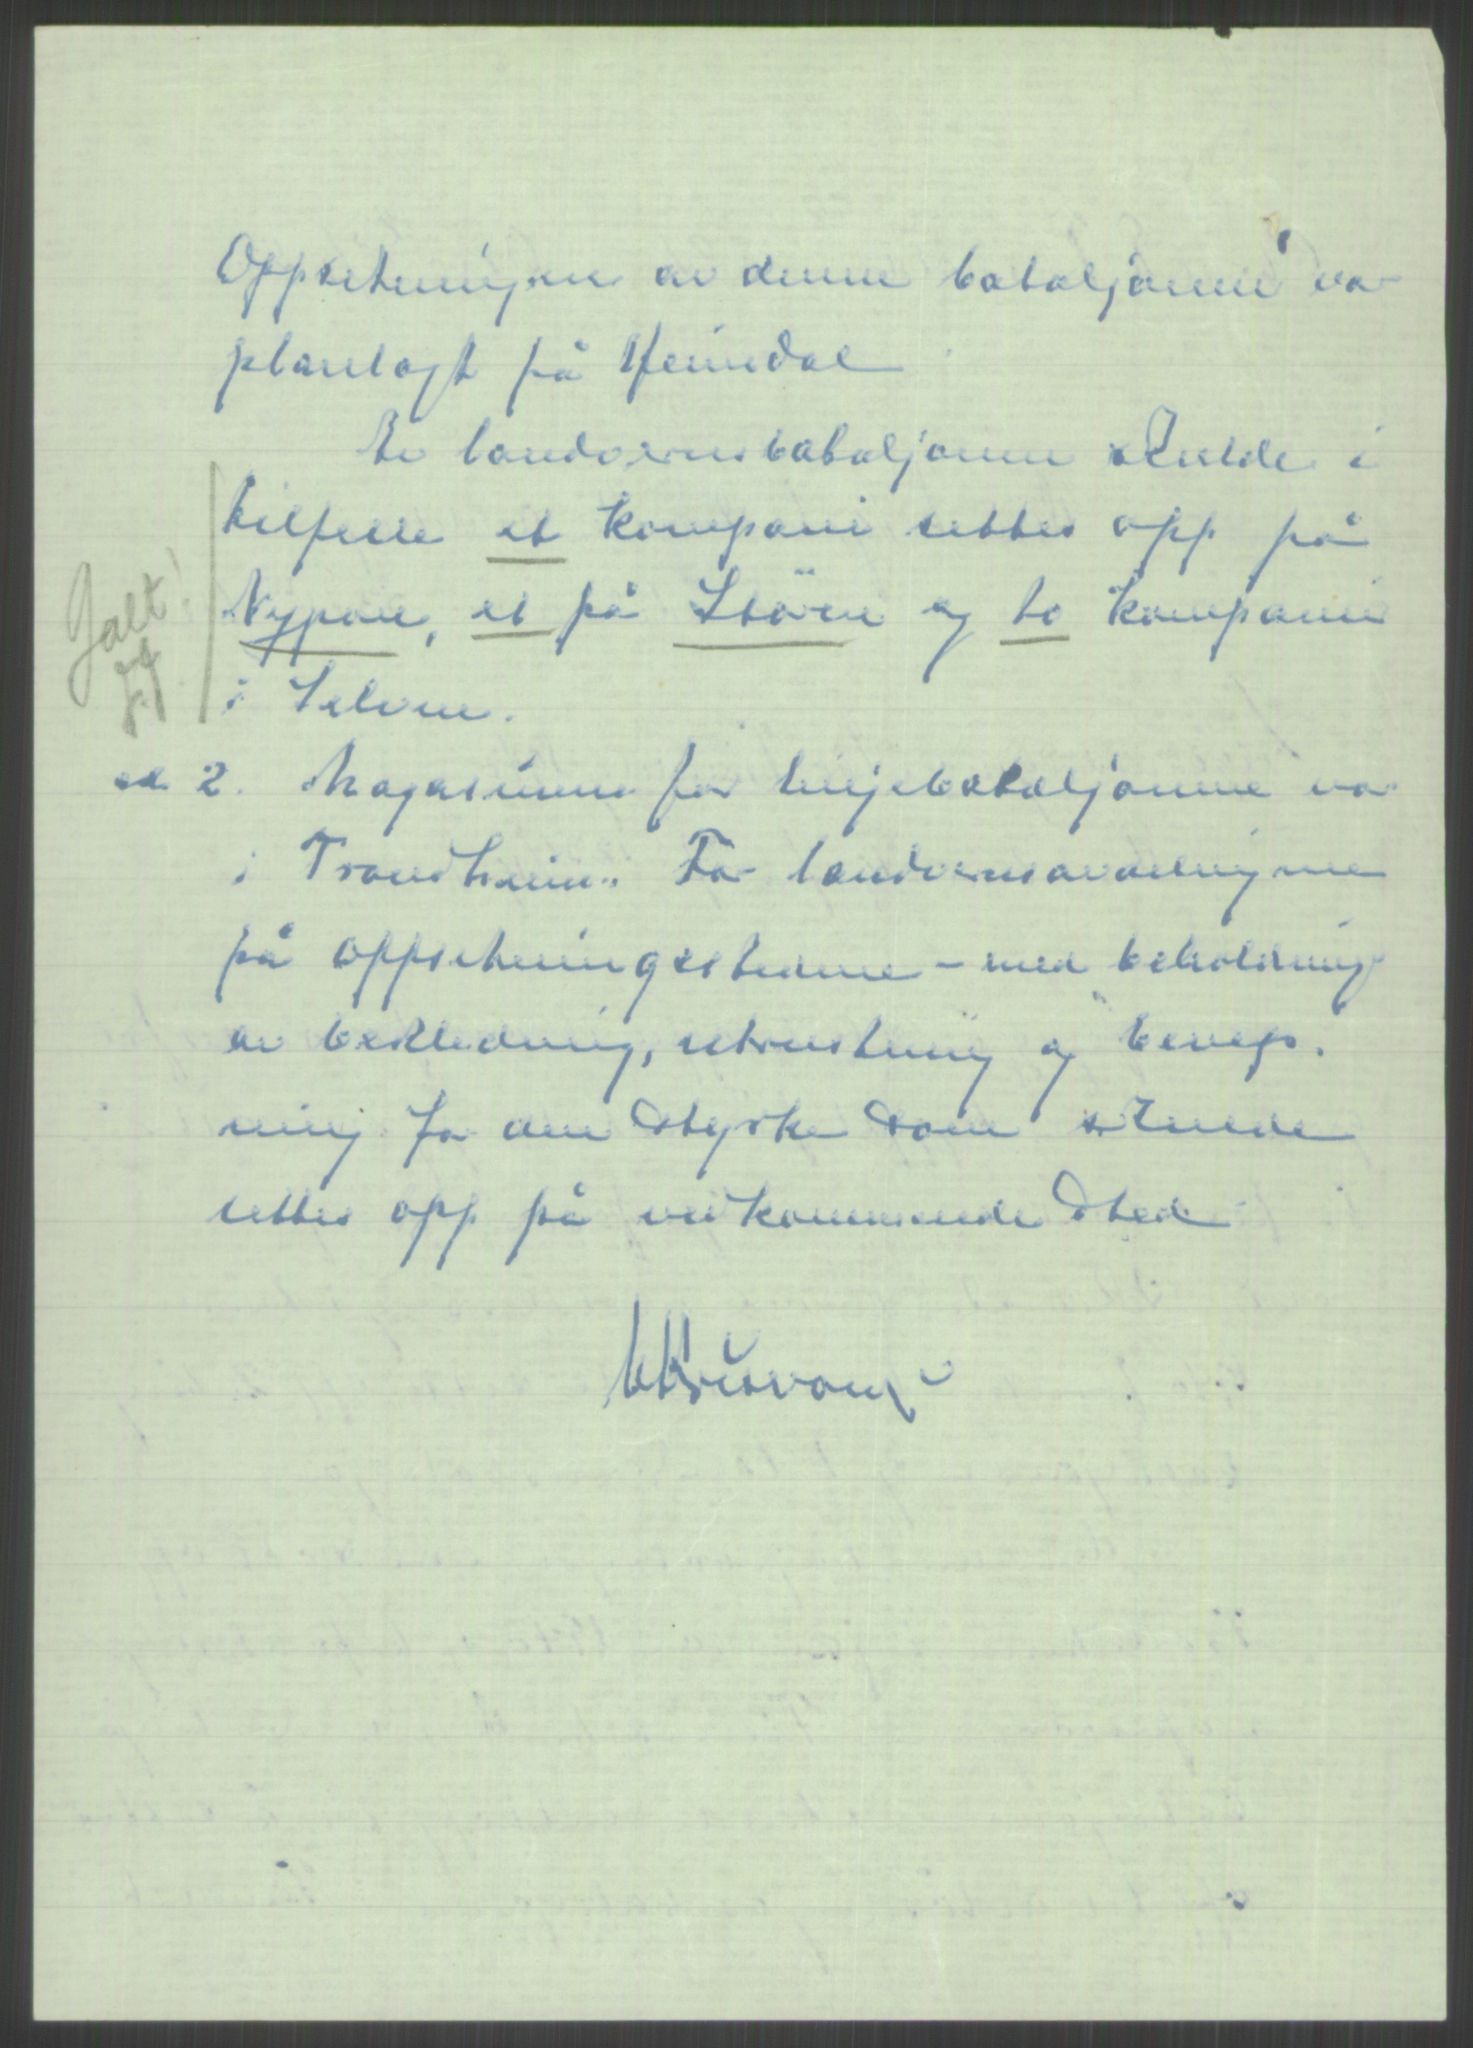 Oppsetningen av denne bataljonen var
planlagt på Heimdal
En landvernsbataljonen skulde i
tilfelle et kompani settes opp på
Nypan, et på Støren og to kompanier
i Selven.
Galt!
ad 2. Magasinene for linjebataljonene var
i Trondheim. For landvernsavdelingene
på oppsetningsstedene - med beholdning
av bekledning, utrustning og bevep-
ning for den styrke som skulde
settes opp på vedkommende sted